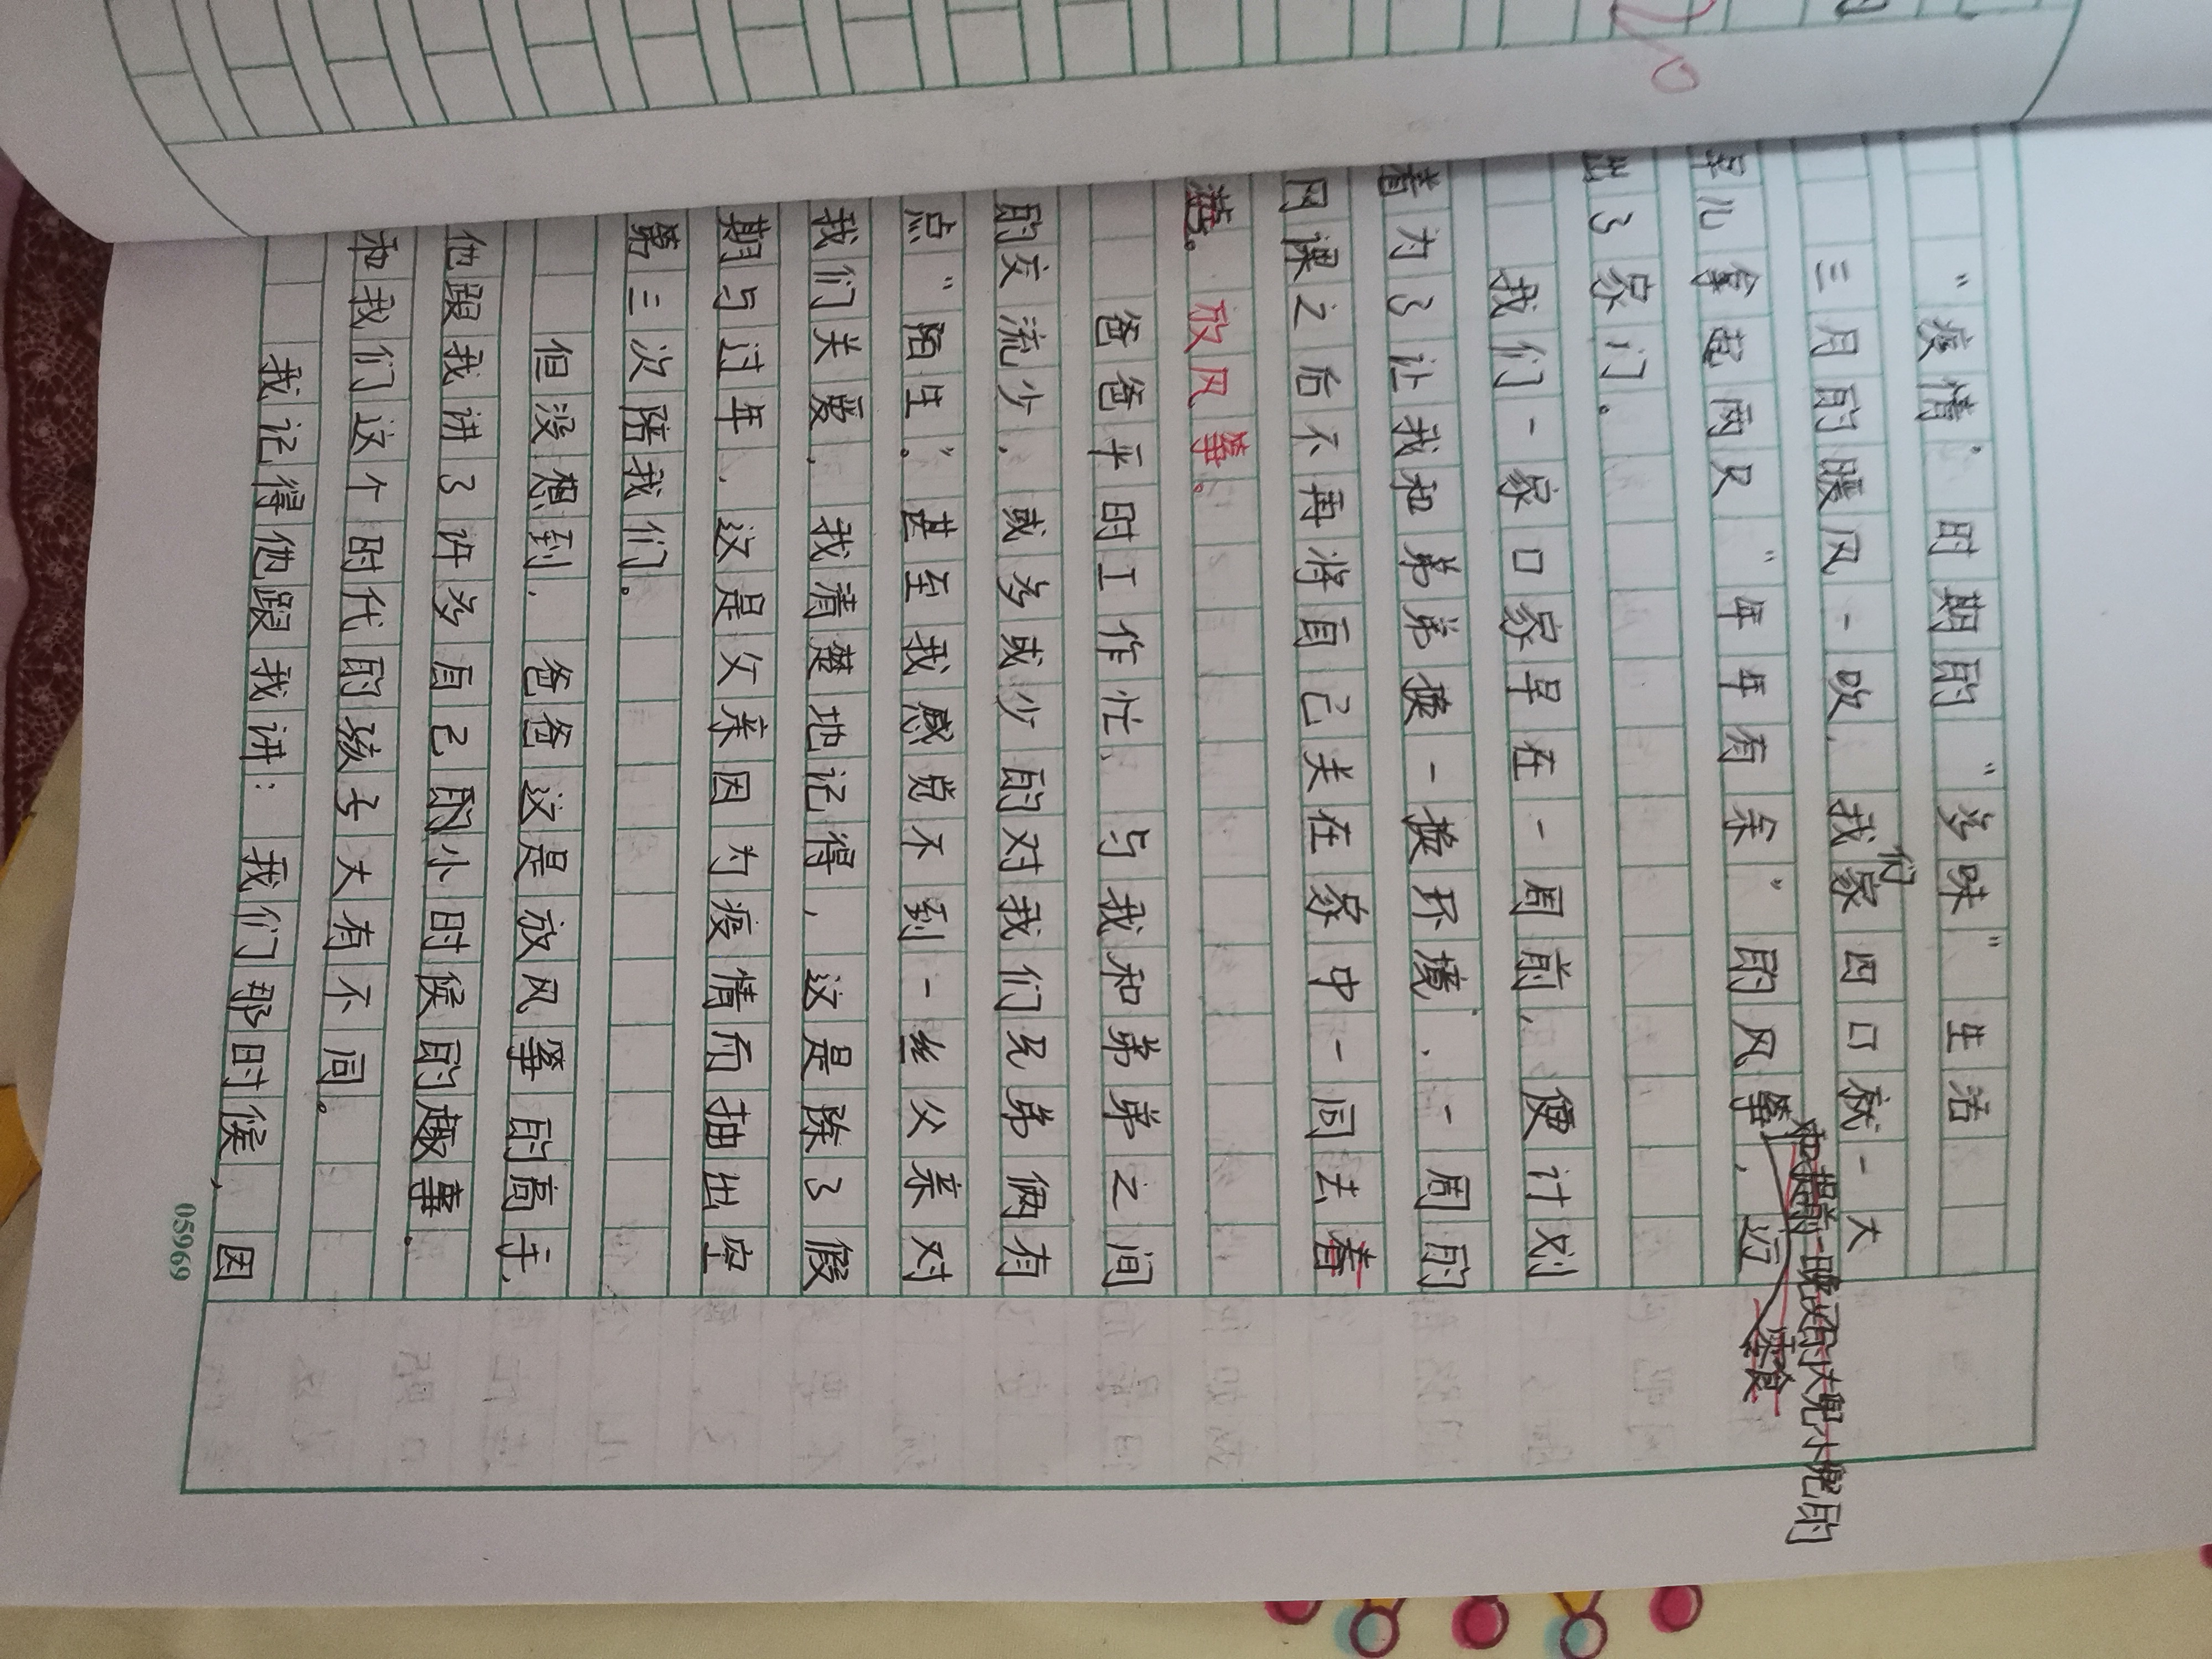 “疫情”时期的“多味”生活
三月的暖风一吹,我们家四口就一大
早儿拿起两只“年年有余”的风筝,迈
和提前一晚设的大兜小兜的
零食
出了家门。
我们一家口家早在一周前,便计划
着为了让我和弟弟换一换环境,一周的
网课之后不再将自己关在家中一同去春
游。放风筝。
爸爸平时工作忙、与我和弟弟之间
的交流少,或多或少的对我们兄弟俩有
点“陌生”。甚至我感觉不到一丝父亲对
我们关爱,我清楚地记得,这是除了假
期与过年、这是父亲因为疫情而抽出空
第三次陪我们。
但没想到,爸爸这是放风筝的高手,
他跟我讲了许多自己的小时候的趣事。
和我们这个时代的孩子大有不同。
我记得他跟我讲:我们那时候,因
05969